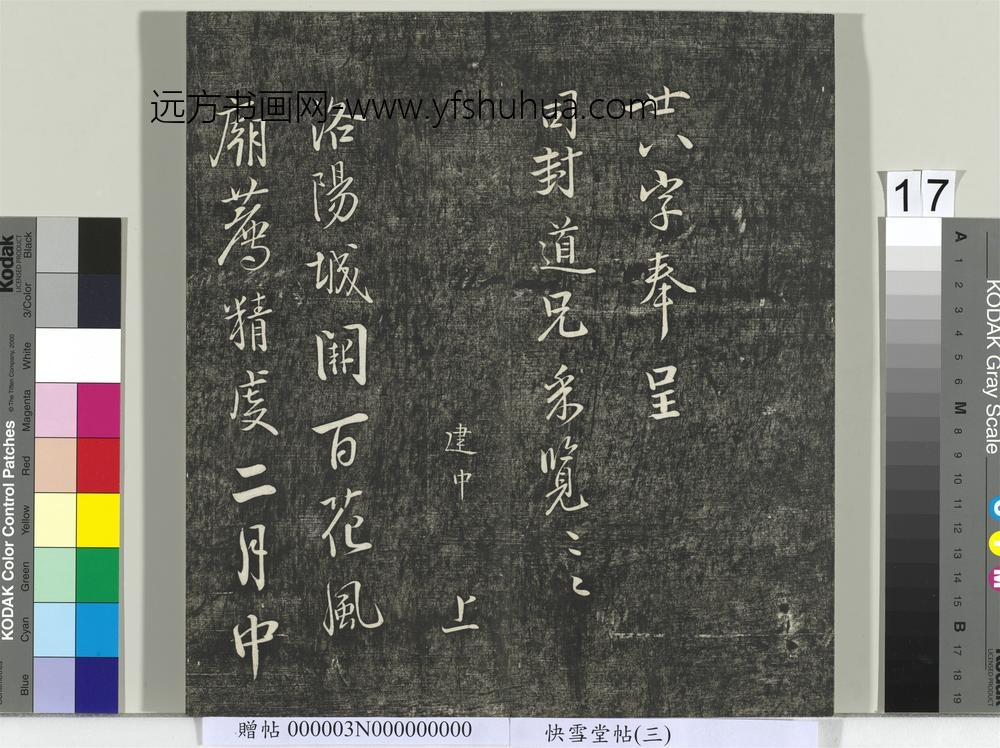 远方书画网-www.yfshuhua.com
廿八字奉呈
司封道兄采覽
建中 上
洛陽城闕百花風
廟薦精虔二月中
17
Kodak
LICENSED PRODUCT
© The Tiffen Company, 2000
KODAK Color Control Patches
Blue Cyan Green Yellow Red Magenta White 3/Color Black
KODAK Gray Scale
A 1 2 3 4 5 6 M 8 9 10 11 12 13 14 15 B 17 18 19
贈帖 000003N000000000
快雪堂帖(三)